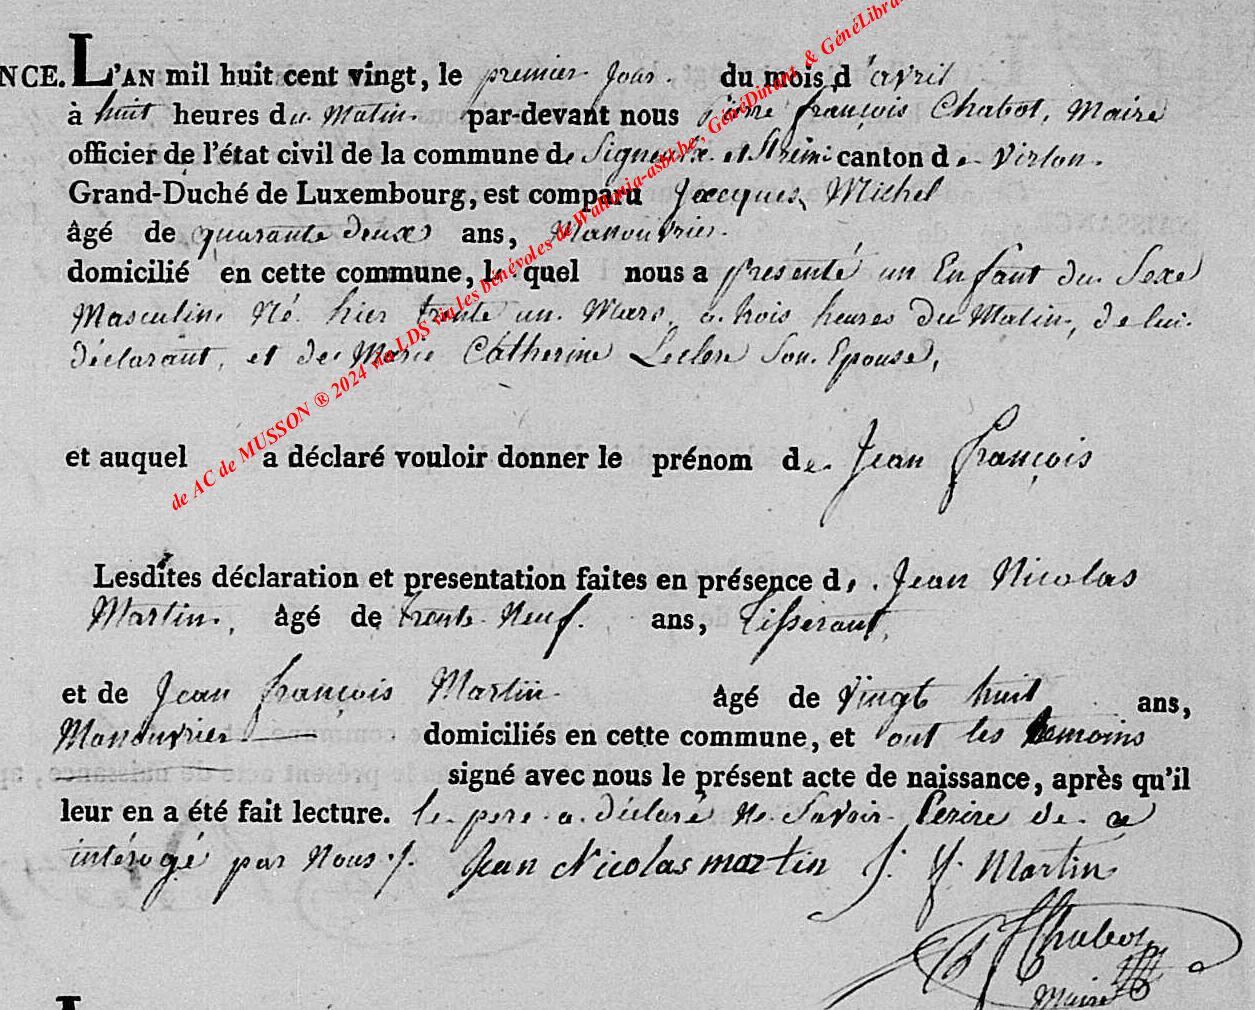 NCE. L'AN mil huit cent vingt, le premier Jour. du mois d'avril
à huit heures du Matin. par-devant nous françois Chabot, Maire
officier de l'état civil de la commune de Signeulx et canton de Virton.
Grand-Duché de Luxembourg, est comparu Jacques Michel
âgé de quarante deux ans, Manouvrier.
domicilié en cette commune, le quel nous a presenté un Enfant du Sexe
Masculin Né hier trente un Mars, a trois heures du Matin, de lui.
déclarant, et de Marie Catherine Leclere Son Epouse,
et auquel a déclaré vouloir donner le prénom de Jean françois
Lesdites déclaration et presentation faites en présence de Jean Nicolas
Martin, âgé de trente Neuf. ans, Tisserant,
et de Jean françois Martin âgé de Vingt huit ans,
Manouvrier domiciliés en cette commune, et ont les temoins
signé avec nous le présent acte de naissance, après qu'il
leur en a été fait lecture. le pere a déclaré ne Savoir Ecrire de ce
intérogé par Nous ./. Jean Nicolas martin J. f. Martin
Chabot
Maire
de AC de MUSSON ® 2024 via LDS via les bénévoles de Wallonia-asbl.be, GénéDinant & GénéLibra